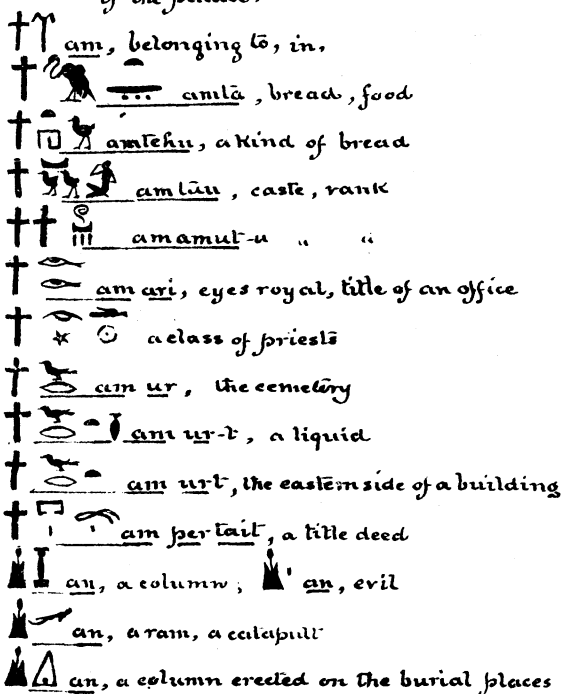 of the palace.
am, belonging to, in.
amta, bread, food
amtehu, a kind of bread
amtau, caste, rank
amamut-u „ „
am ari, eyes royal, title of an office
a class of priests
am ur, the cemetery
am ur-t, a liquid
am urt, the eastern side of a building
am per tait, a title deed
an, a column; an, evil
an, a ram, a catapult
an, a column erected on the burial places